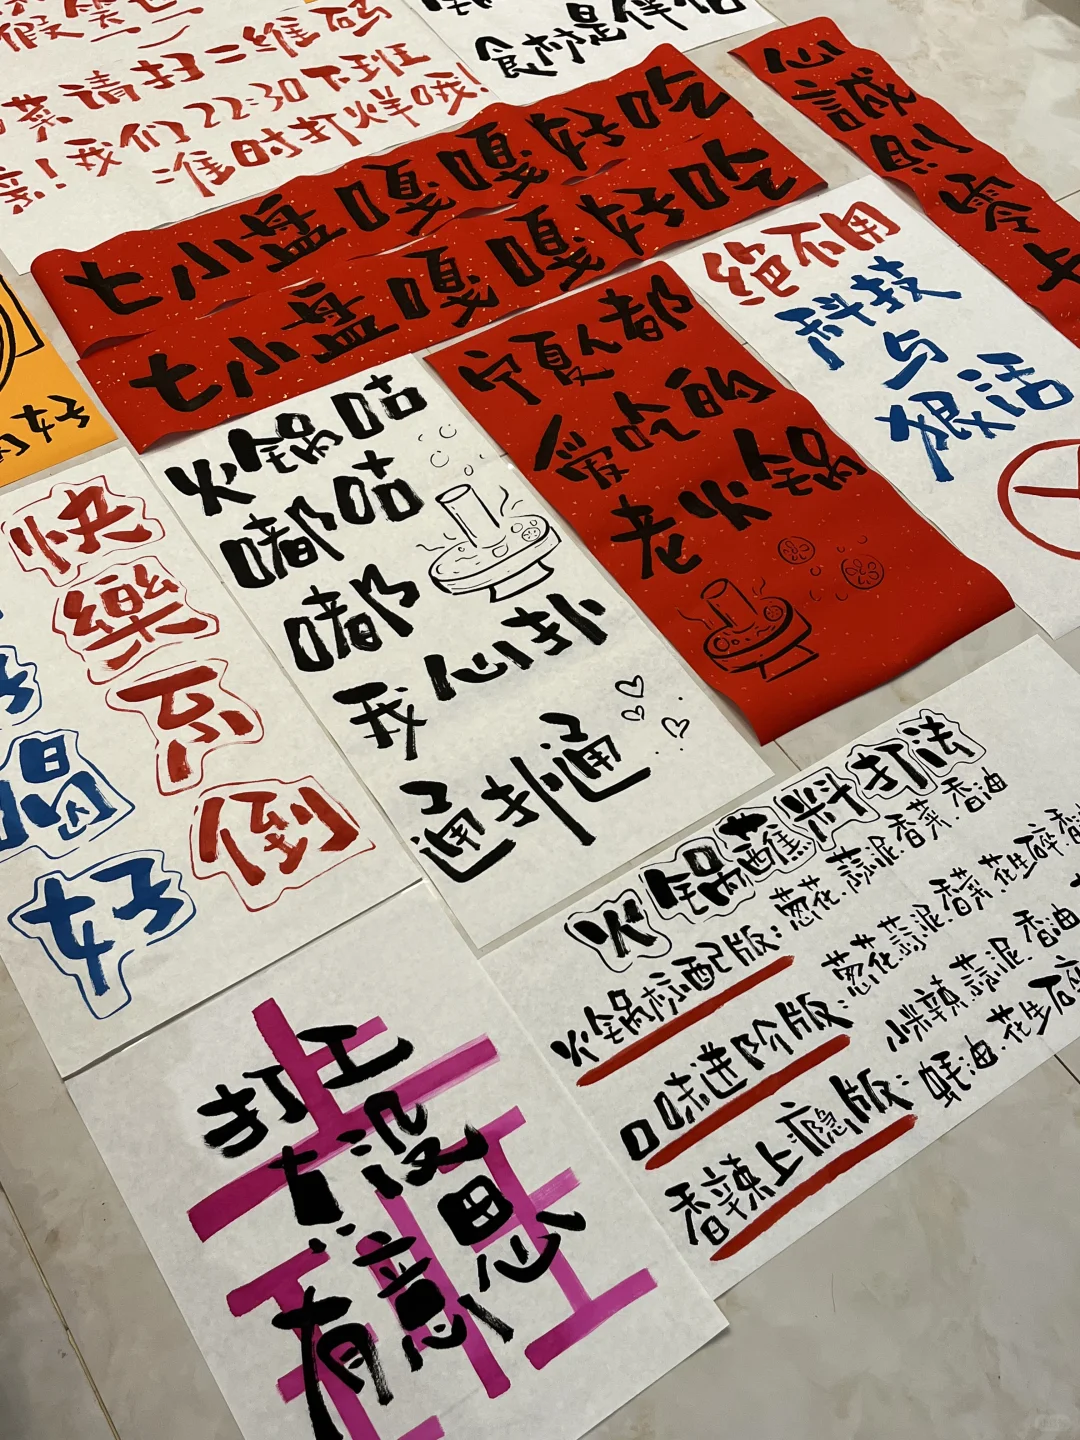 菜请扫二维码
亲!我们22:30下班
准时打烊哦!
食材是伴侣
七小盘嘎嘎好吃
七小盘嘎嘎好吃
心誠則靈
绝不用
科技
与
狠活
宁夏人都
爱吃的
老火锅
火锅咕
嘟咕
嘟都
我心扑
通扑通
快
樂
不
倒
喝
好
火锅蘸料打法
火锅标配版:葱花.蒜泥.香菜.香油
口味进阶版:葱花.蒜泥.香菜.花生碎.香
小米辣.蒜泥.香油
香辣上瘾版:蚝油.花生碎
打工
没
有意思